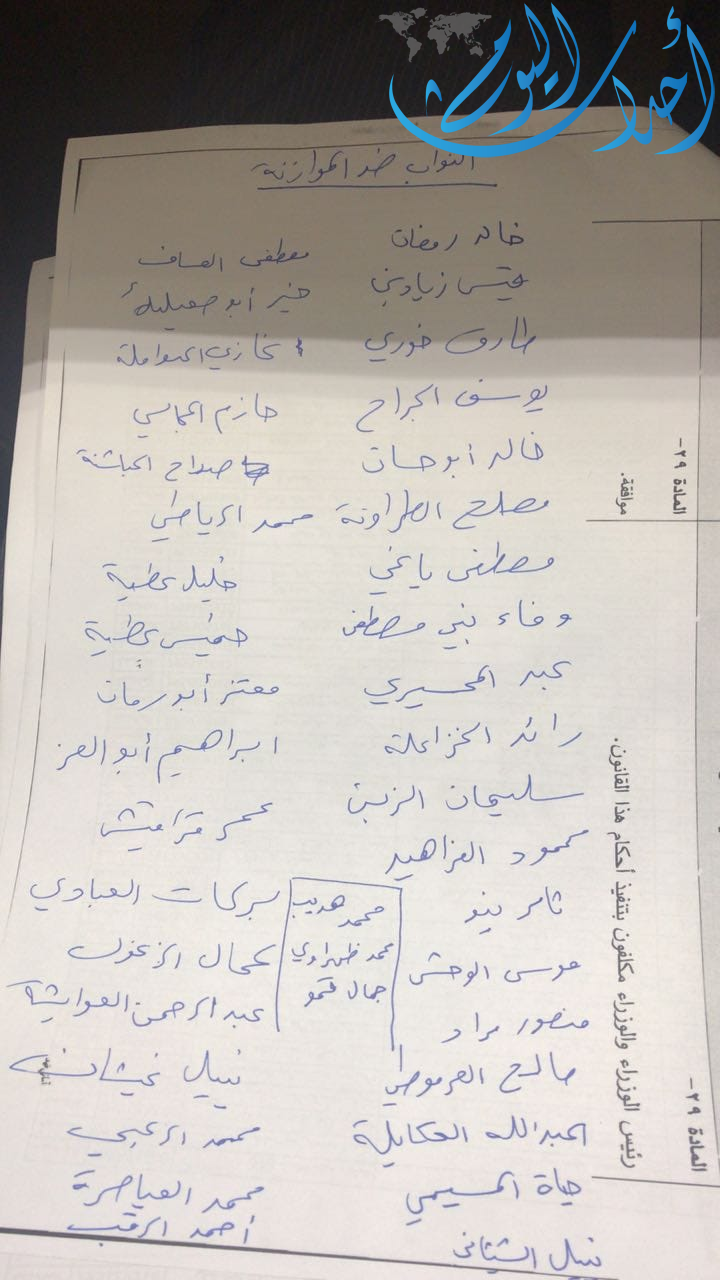 أحداث اليوم
النواب ضد الموازنة
خالد رمضان
قيس زيادين
طارق خوري
يوسف الجراح
خالد أبو حسان
مصلح الطراونة
مصطفى ياغي
وفاء بني مصطفى
عبد المحسيري
رائد الخزاعلة
سليمان الزبن
محمود الفراهيد
تامر بينو
موسى الوحش
منصور مراد
صالح العرموطي
العبدالله العكايلة
حياة المسيمي
نبيل الشيشاني
مصطفى العساف
خير أبو صعيليك
غازي الهواملة
حازم المجالي
صداح الحباشنة
محمد الرياطي
خليل عطية
خميس عطية
معتز أبو رمان
ابراهيم أبو العز
عمر قراقيش
بركات العبادي
كمال الزغول
عبد الرحمن العوايشة
نبيل غيشان
محمد الزعبي
محمد العياصرة
أحمد الرقب
محمد هديب
محمد ظهراوي
جمال قمو
المادة ٢٩-
موافقة.
المادة ٢٩-
رئيس الوزراء والوزراء مكلفون بتنفيذ أحكام هذا القانون.